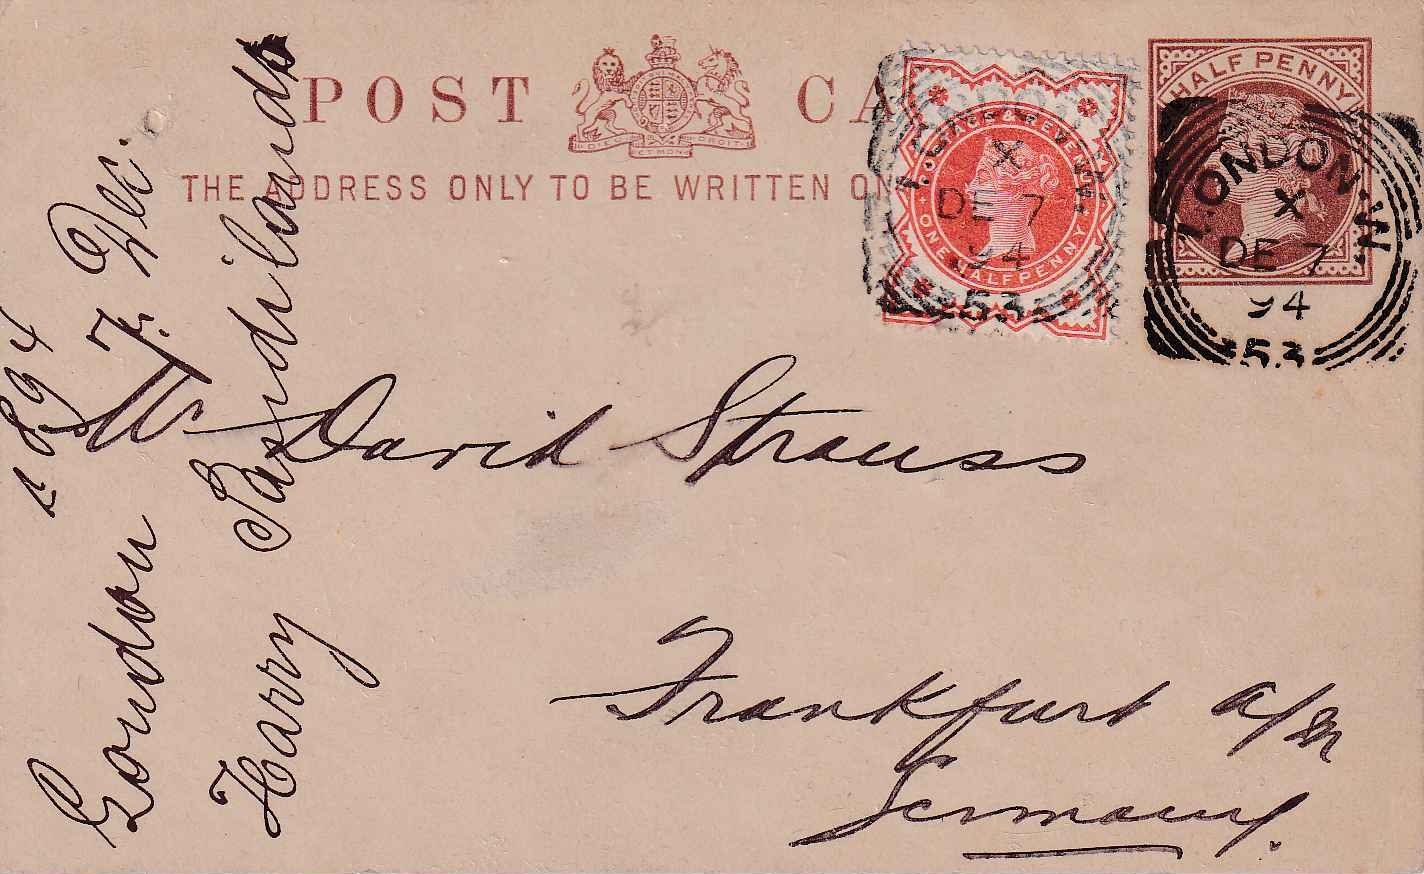 POST CA
DIEU ET MON DROIT
THE ADDRESS ONLY TO BE WRITTEN ON
POSTAGE & REVENUE
ONE HALFPENNY
X
DE 7
94
53
HALF PENNY
LONDON.W.
X
DE 7
94
53
Mr David Strauss
Frankfurt a/M
Germany.
London 7. Dec.
1894
Harry Sandilands